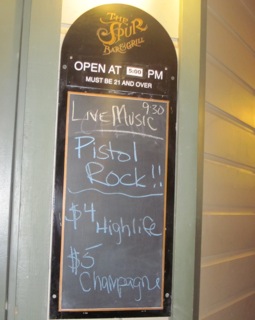 THE
SPUR
BAR & GRILL
OPEN AT 5:00 PM
MUST BE 21 AND OVER
LIVE MUSIC 9:30
Pistol
Rock!!
$4
Highlife
$5
Champagne